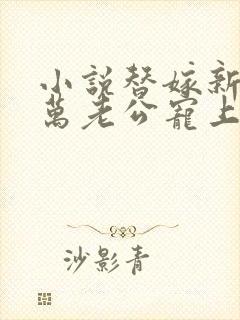 小説替嫁新
萬老公寵上
沙影青